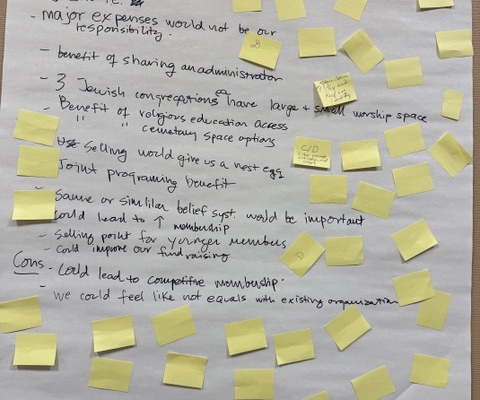 - major expenses would not be our
responsibility.
- benefit of sharing an administrator
- 3 Jewish congregations ea have large + small worship space
- Benefit of religious education access
" " cemetary space options
Selling would give us a nest egg
Joint programing benefit
Same or similar belief syst. would be important
could lead to ↑ membership
- Selling point for younger members
- Could improve our fundraising
Cons - Could lead to competitive membership.
- we could feel like not equals with existing organization
D
C/D
D